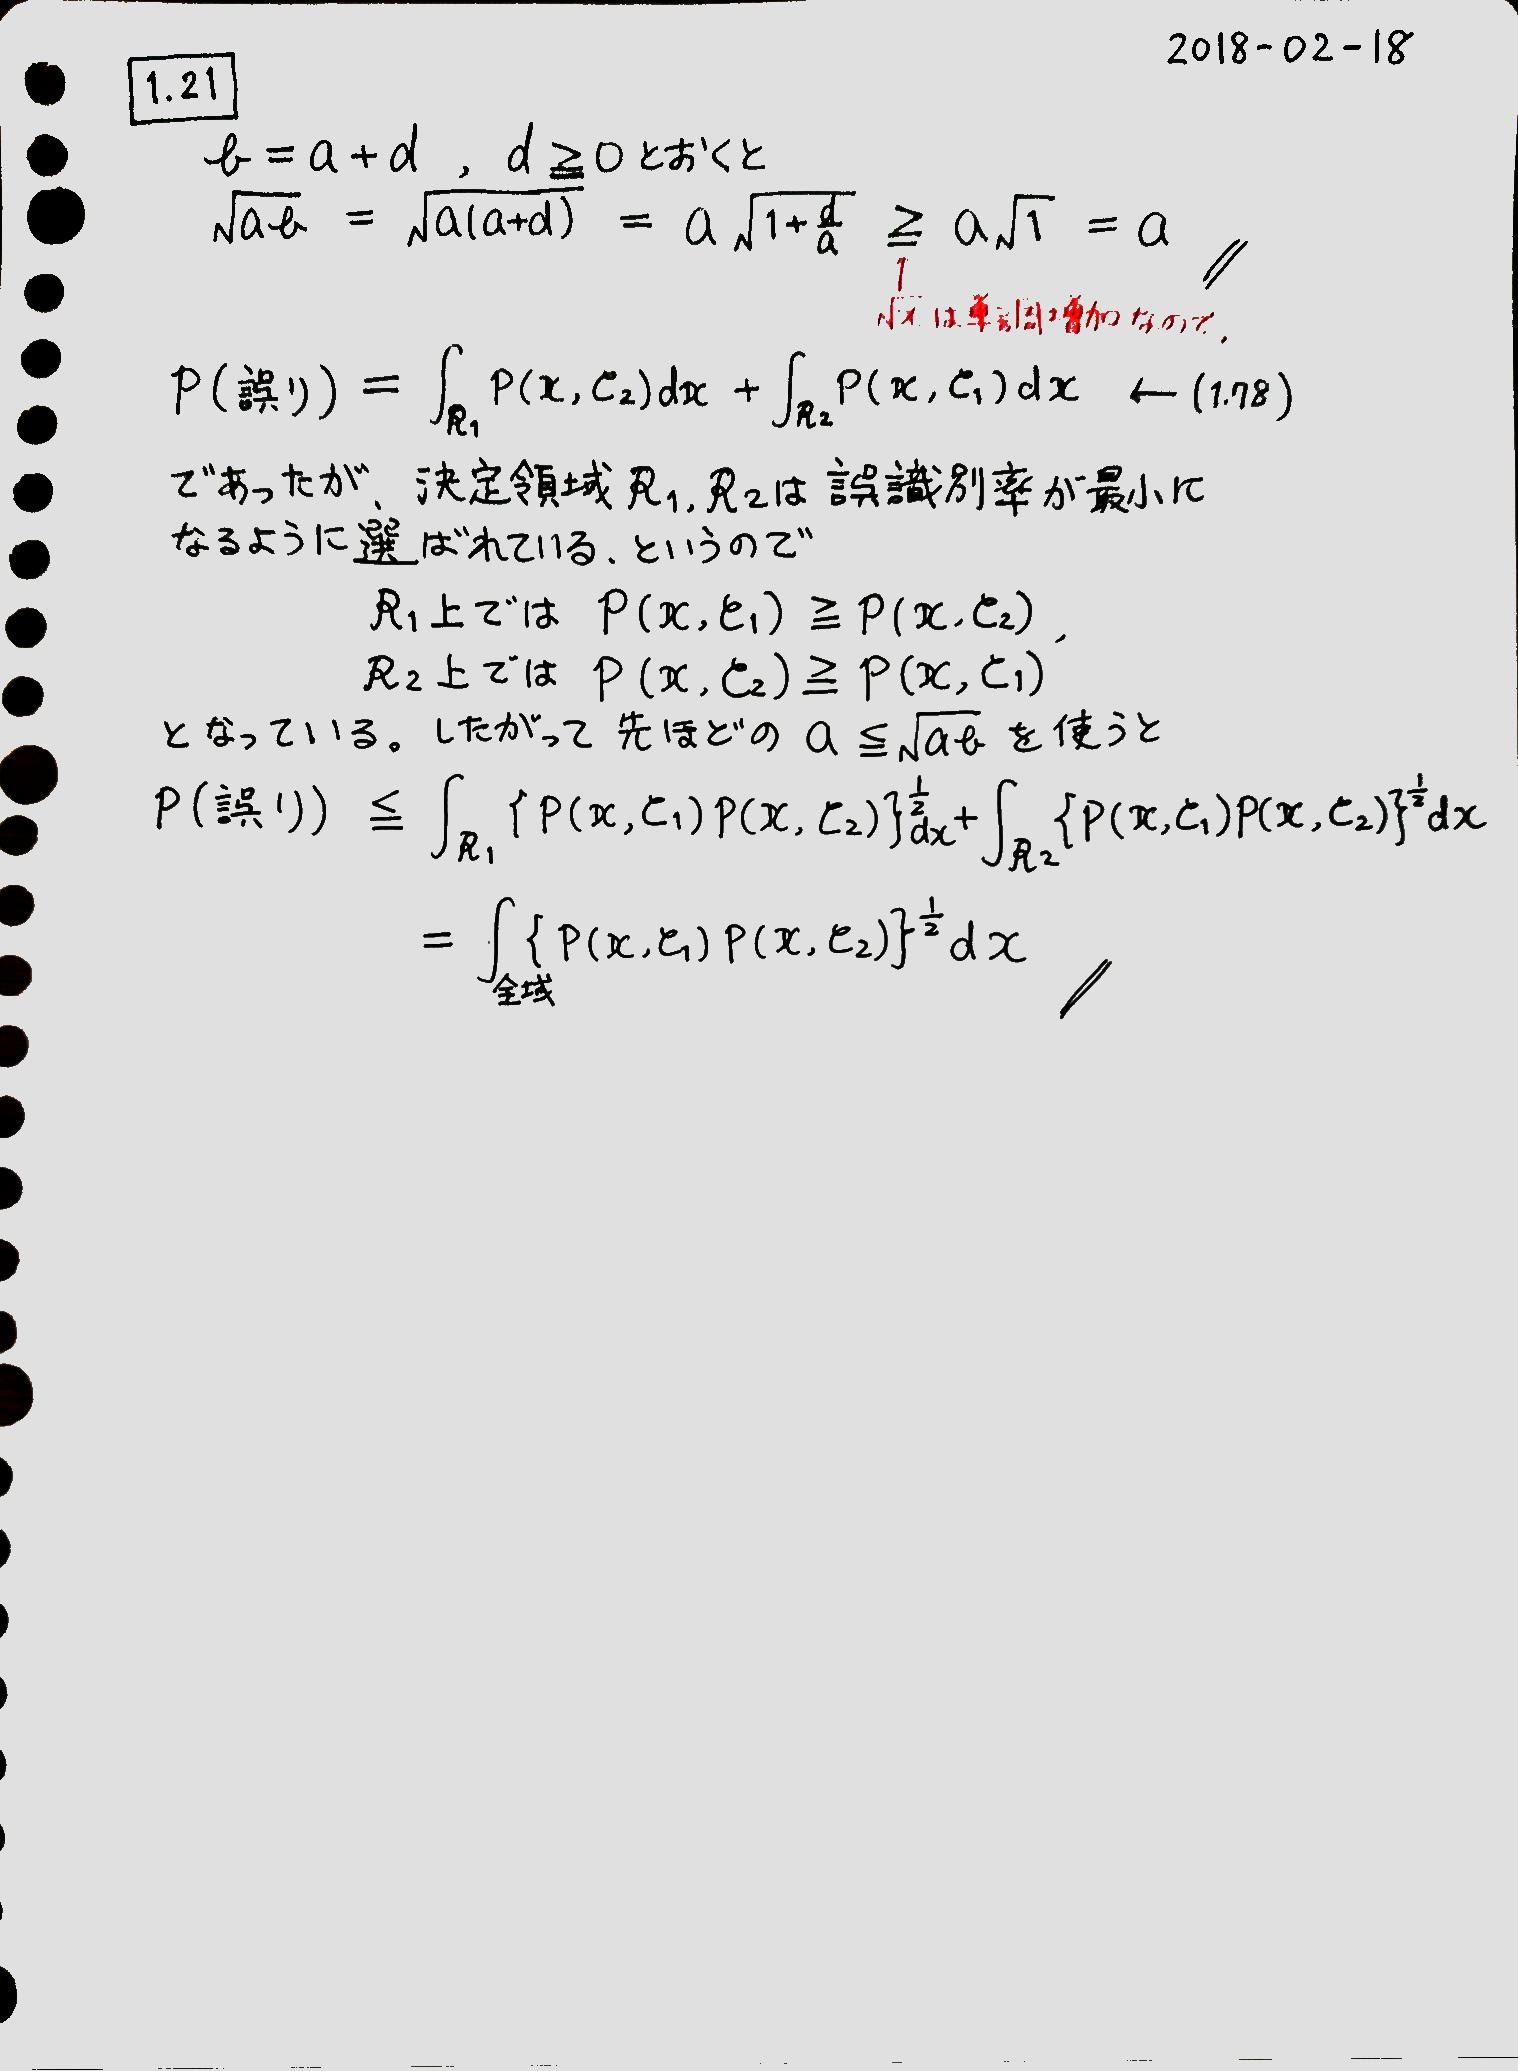 2018-02-18
1.21
b = a + d , d ≧ 0 とおくと
√ab = √a(a+d) = a√1+d/a ≧ a√1 = a //
↑
√x は単調増加なので.
P(誤り) = ∫_R1 P(x, C2)dx + ∫_R2 P(x, C1)dx ← (1.78)
であったが、決定領域 R1, R2は 誤識別率が最小に
なるように選ばれている. というので
R1上では P(x, C1) ≧ P(x, C2) ,
R2上では P(x, C2) ≧ P(x, C1)
となっている。したがって 先ほどの a ≦ √ab を使うと
P(誤り) ≦ ∫_R1 {P(x, C1) P(x, C2)}^1/2 dx + ∫_R2 {P(x, C1)P(x, C2)}^1/2 dx
= ∫_全域 {P(x, C1) P(x, C2)}^1/2 dx //